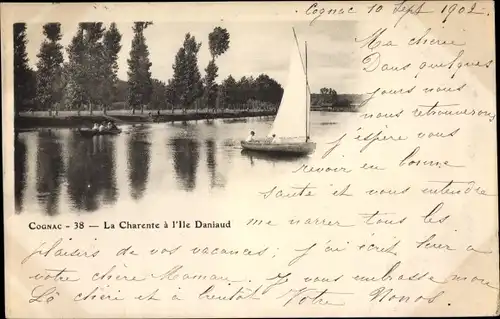 Cognac 10 Sept 1902
Ma chérie
Dans quelques
jours nous nous
nous retrouverons
j'espère vous
revoir en bonne
santé et vous entendre
me narrer tous les
COGNAC - 38 — La Charente à l'Ile Daniaud
plaisirs de vos vacances; j'ai écrit hier à
votre chère Maman. Je vous embrasse mon
Lô chérie et à bientôt Votre Nonos.